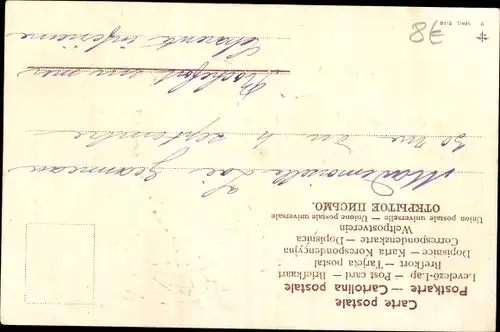 Carte postale
Postkarte — Cartolina postale
Levelező-Lap — Post card — Briefkaart
Brefkort — Tarjeta postal
Dopisnice — Karta Korespondencyjna
Correspondenzkarte — Dopisnica
Weltpostverein
Union postale universelle — Unione postale universale
ОТКРЫТОЕ ПИСЬМО.
Mademoiselle
30 rue du 4 septembre
Rochefort sur mer
Charente inférieure
8€